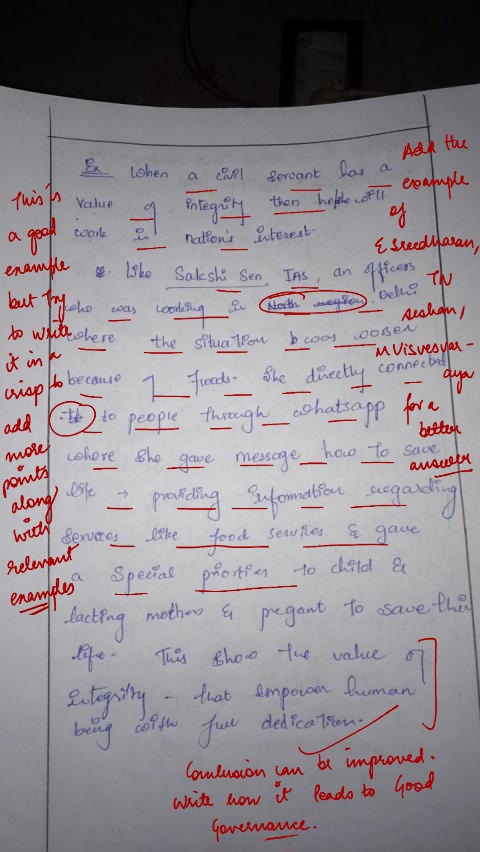 Ex When a civil servant has a
value of integrity then he/she will
work in nation's interest.
Like Sakshi Sen IAS, an officers
who was working in North region. Delhi
where the situation was worsen
because of floods. She directly connected
to to people through whatsapp
where she gave message how to save
life → providing information regarding
services like food services & gave
a special priorties to child &
lacting mothers & pregant to save their
life. This show the value of
integrity - that empower human
being with full dedication.
This is
a good
example
but try
to write
it in a
crisp to
add
more
points
along
with
relevant
examples
Add the
example
of
E Sreedharan,
TN
Seshan,
M Visvesvar-
aya
for a
better
answer
Conclusion can be improved.
Write how it leads to Good
Governance.